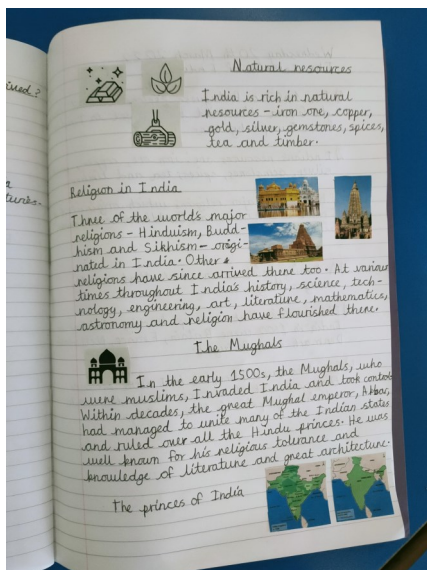 ived?
tures.
Natural resources
India is rich in natural
resources - iron ore, copper,
gold, silver, gemstones, spices,
tea and timber.
Religion in India
Three of the world's major
religions - Hinduism, Budd-
hism and Sikhism - origi-
nated in India. Other
religions have since arrived there too. At various
times throughout India's history, science, tech-
nology, engineering, art, literature, mathematics,
astronomy and religion have flourished there.
The Mughals
In the early 1500s, the Mughals, who
were muslims, invaded India and took control.
Within decades, the great Mughal emperor, Akbar,
had managed to unite many of the Indian states
and ruled over all the Hindu princes. He was
well known for his religious tolerance and
knowledge of literature and great architecture.
The princes of India